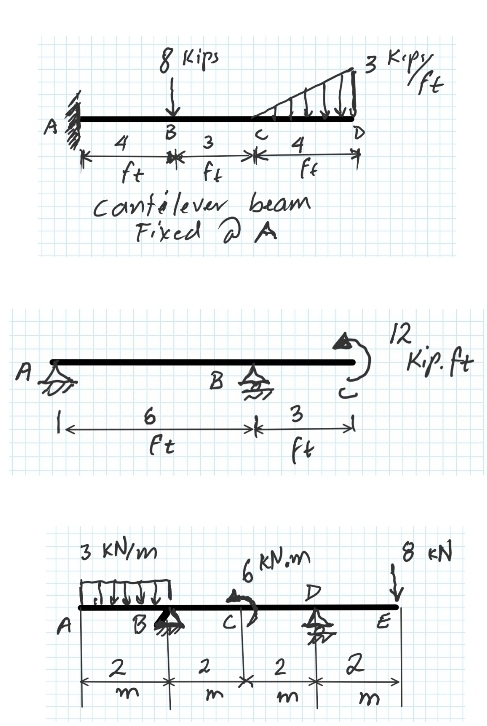 8 Kips
3 Kips/ft
A
B
C
D
4 ft
3 ft
4 ft
Cantilever beam
Fixed @ A
12 Kip.ft
A
B
C
6 ft
3 ft
3 KN/m
6 KN.m
8 KN
A
B
C
D
E
2 m
2 m
2 m
2 m